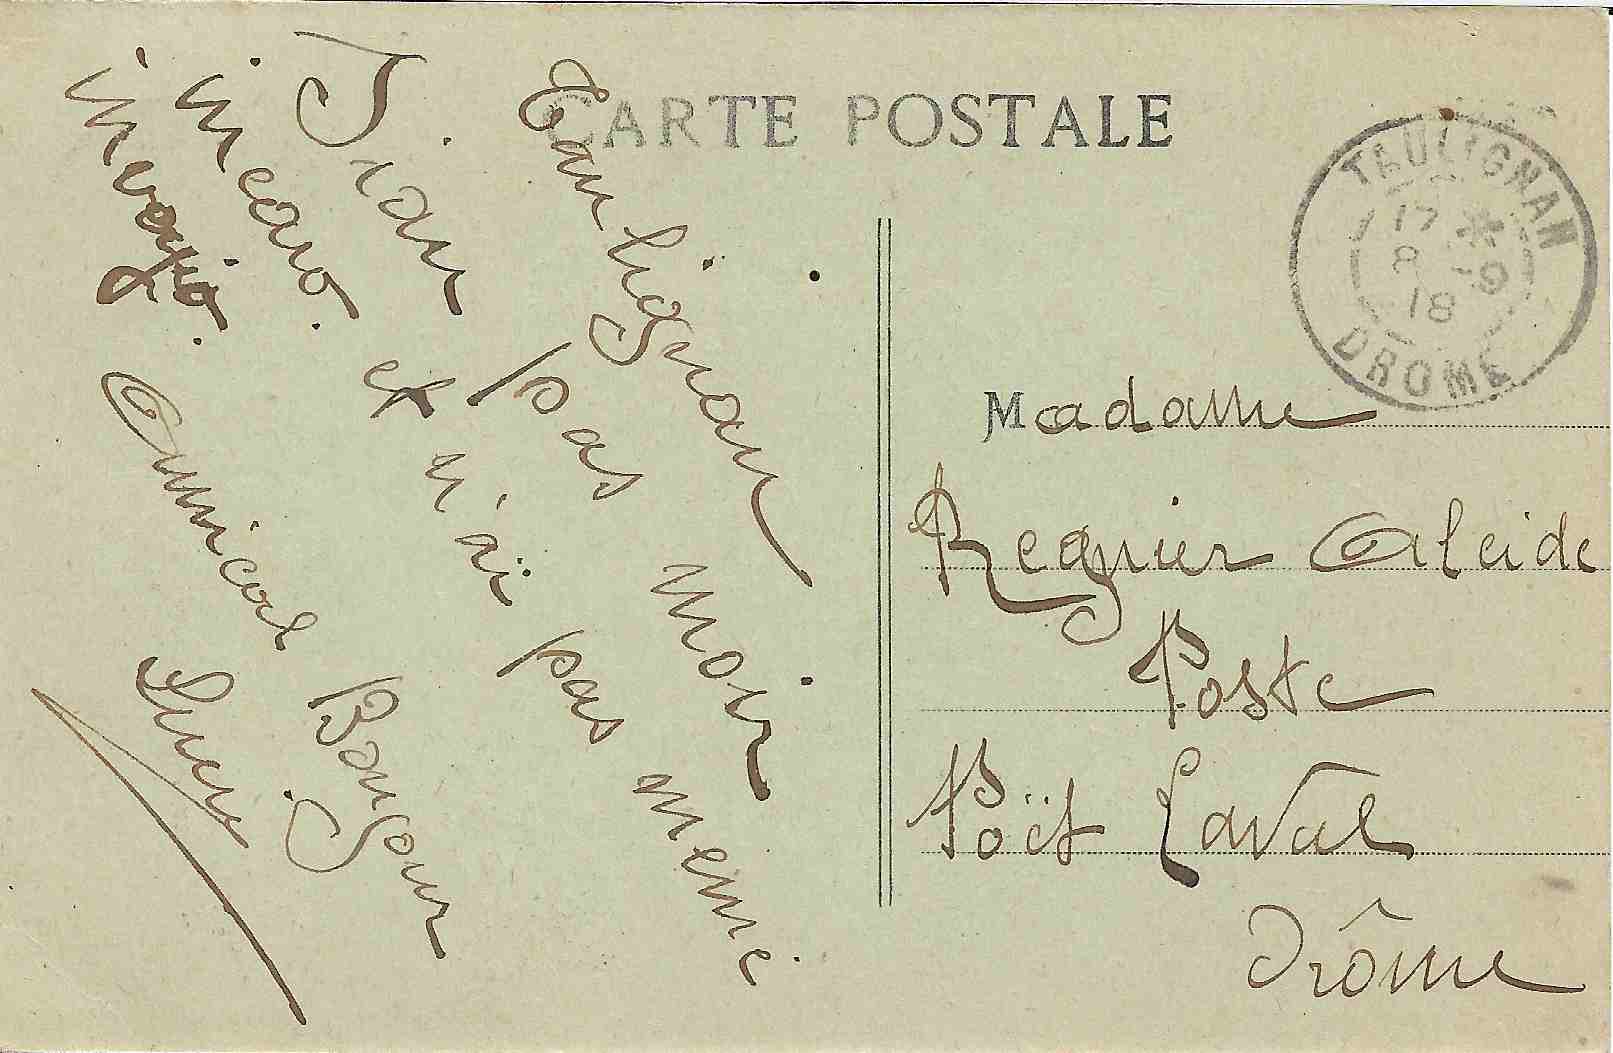 CARTE POSTALE
TAULIGNAN
17 *
8 -9
18
DROME
Taulignan
Sian pas moir
incaro. et n'ai pas meme
invejio.
Amical Bonjour
Madame
Regnier Alcide
Poste
Poët Laval
Drôme